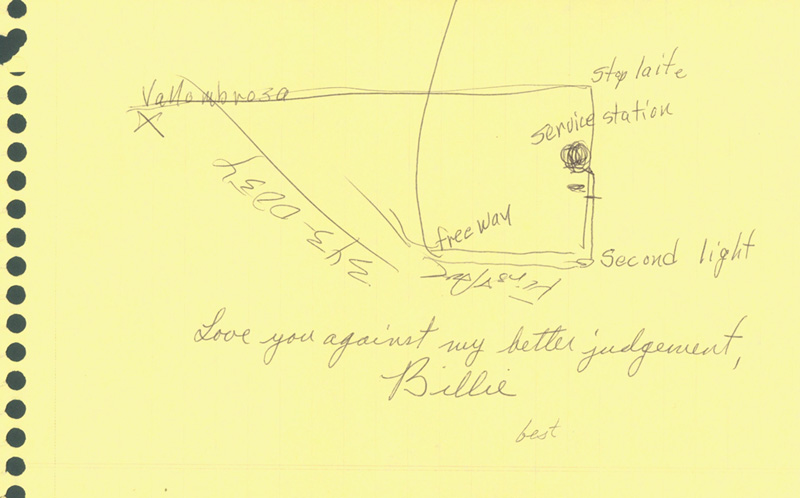 Stop laite
Vallombrosa
X
service station
free way
Second light
Love you against my better judgement,
Billie
best